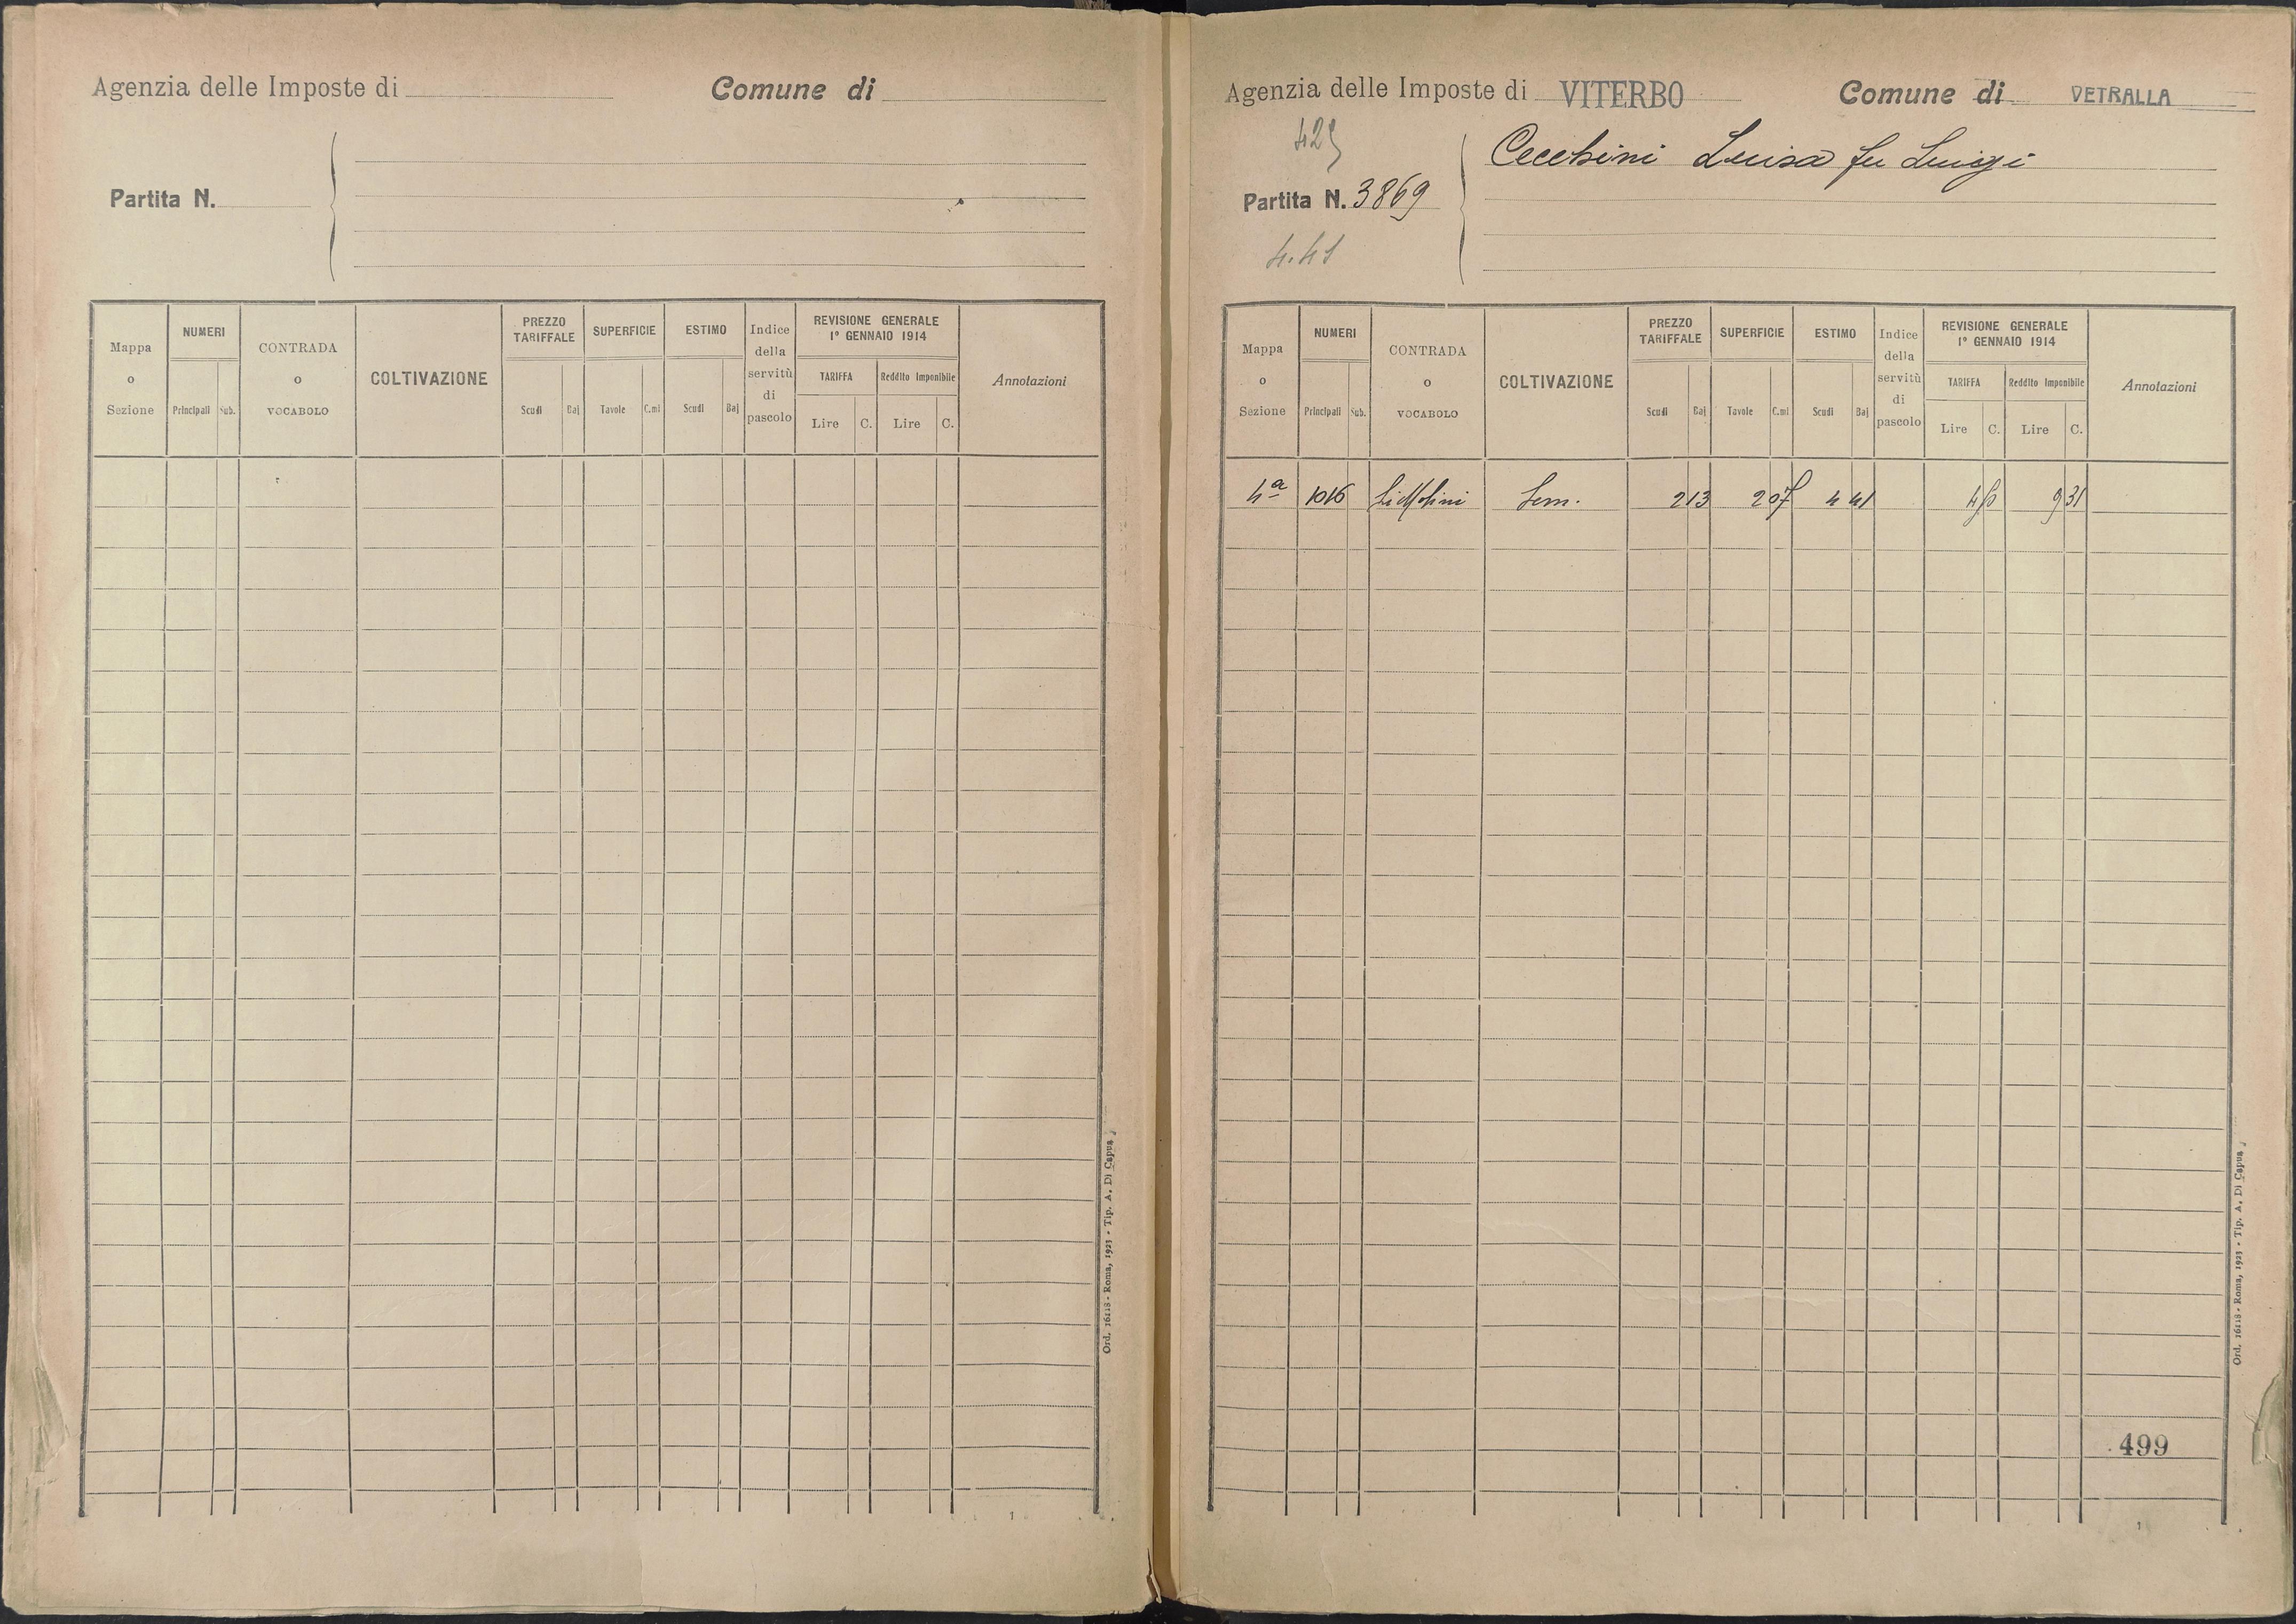 Agenzia delle Imposte di
Comune di
Partita N.
Mappa o Sezione
NUMERI
Principali
Sub.
CONTRADA o VOCABOLO
COLTIVAZIONE
PREZZO TARIFFALE
Scudi
Baj
SUPERFICIE
Tavole
C.mi
ESTIMO
Scudi
Baj
Indice della servitù di pascolo
REVISIONE GENERALE
1° GENNAIO 1914
TARIFFA
Reddito Imponibile
Lire
C.
Lire
C.
Annotazioni
Ord. 16118 - Roma, 1923 - Tip. A. Di Capua
Agenzia delle Imposte di VITERBO
Comune di VETRALLA
Cecchini Luisa fu Luigi
Partita N. 3869
4.41
Mappa o Sezione
NUMERI
Principali
Sub.
CONTRADA o VOCABOLO
COLTIVAZIONE
PREZZO TARIFFALE
Scudi
Baj
SUPERFICIE
Tavole
C.mi
ESTIMO
Scudi
Baj
Indice della servitù di pascolo
REVISIONE GENERALE
1° GENNAIO 1914
TARIFFA
Reddito Imponibile
Lire
C.
Lire
C.
Annotazioni
4ª 1016 Sem. 2 13 2 07 4 41 9 31
499
Ord. 16118 - Roma, 1923 - Tip. A. Di Capua